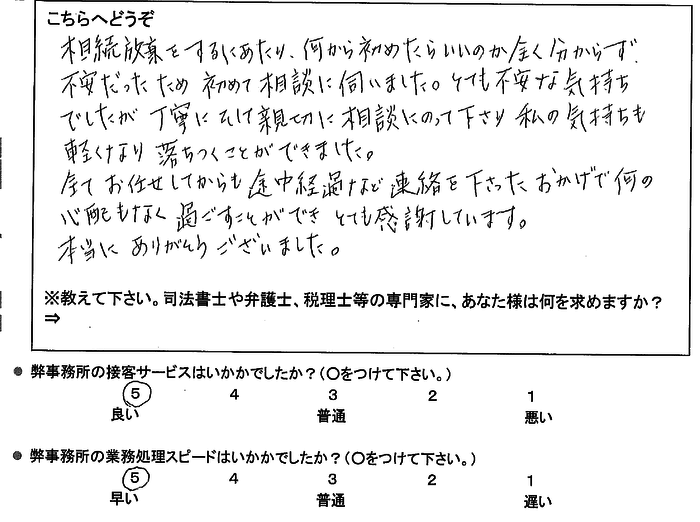 こちらへどうぞ
相続放棄をするにあたり、何から初めたらいいのか全く分からず、
不安だったため 初めて相談に伺いました。とても不安な気持ち
でしたが 丁寧に そして親切に相談にのって下さり 私の気持ちも
軽くなり 落ちつくことができました。
全て お任せしてからも 途中経過など 連絡を下さった おかげで何の
心配もなく 過ごすことができ とても感謝しています。
本当に ありがとうございました。
※教えて下さい。司法書士や弁護士、税理士等の専門家に、あなた様は何を求めますか?
⇒
● 弊事務所の接客サービスはいかかでしたか?(○をつけて下さい。)
5 4 3 2 1
良い 普通 悪い
● 弊事務所の業務処理スピードはいかかでしたか?(○をつけて下さい。)
5 4 3 2 1
早い 普通 遅い